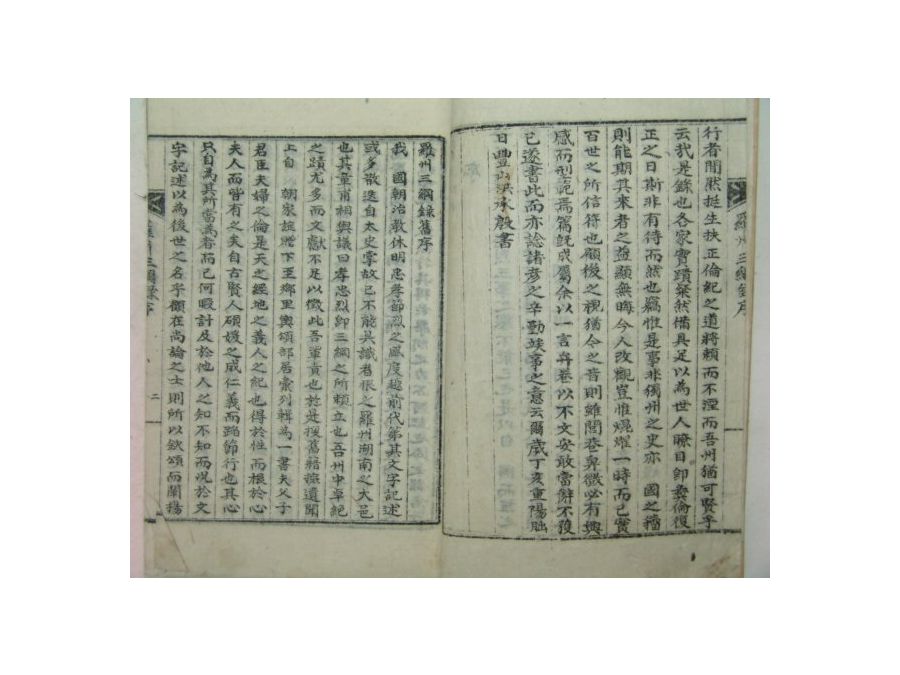 羅州三綱錄序
行者間然挺生扶正倫紀之道將賴而不湮而吾州猶可賢乎
云我是錄也各家實蹟粲然備具足以為世人瞭目即彜倫復
正之日斯非有待而然也竊惟是事非獨州之史亦 國之
則能期其來者之益顯無晦今人改觀豈惟焜燿一時而已實
百世之所信符也顧後之視猶今之昔則雖閭巷卑微必有興
感而型範焉篇旣成屬余以一言弁卷以不文安敢當辭不獲
已遂書此而亦諗諸彦之辛勤竣事之意云爾歲丁亥重陽
日豊山洪承殷書
羅州三綱錄舊序
我 國朝治敎休明忠孝節烈之風度越前代第其文字記述
或多散迭自太史掌故已不能具識者恨之羅州湖南之大邑
也其章甫相與議曰孝忠烈卽三綱之所賴立也吾州中卓絶
之蹟尤多而文獻不足以徵此吾輩責也於是搜舊籍摭遺聞
上自 朝家旌贈下至鄕里輿頌部居彙列輯為一書夫父子
君臣夫婦之倫是天之經地之義人之紀也得於性而根於心
夫人而皆有之矣自古賢人碩媛之成仁義而蹈節行也其心
只自為其所當為者而已何暇計及於他人之知不知而况於文
字記述以為後世之名乎顧在尚論之士則所以欽頌而闡揚
羅州三綱錄序
二